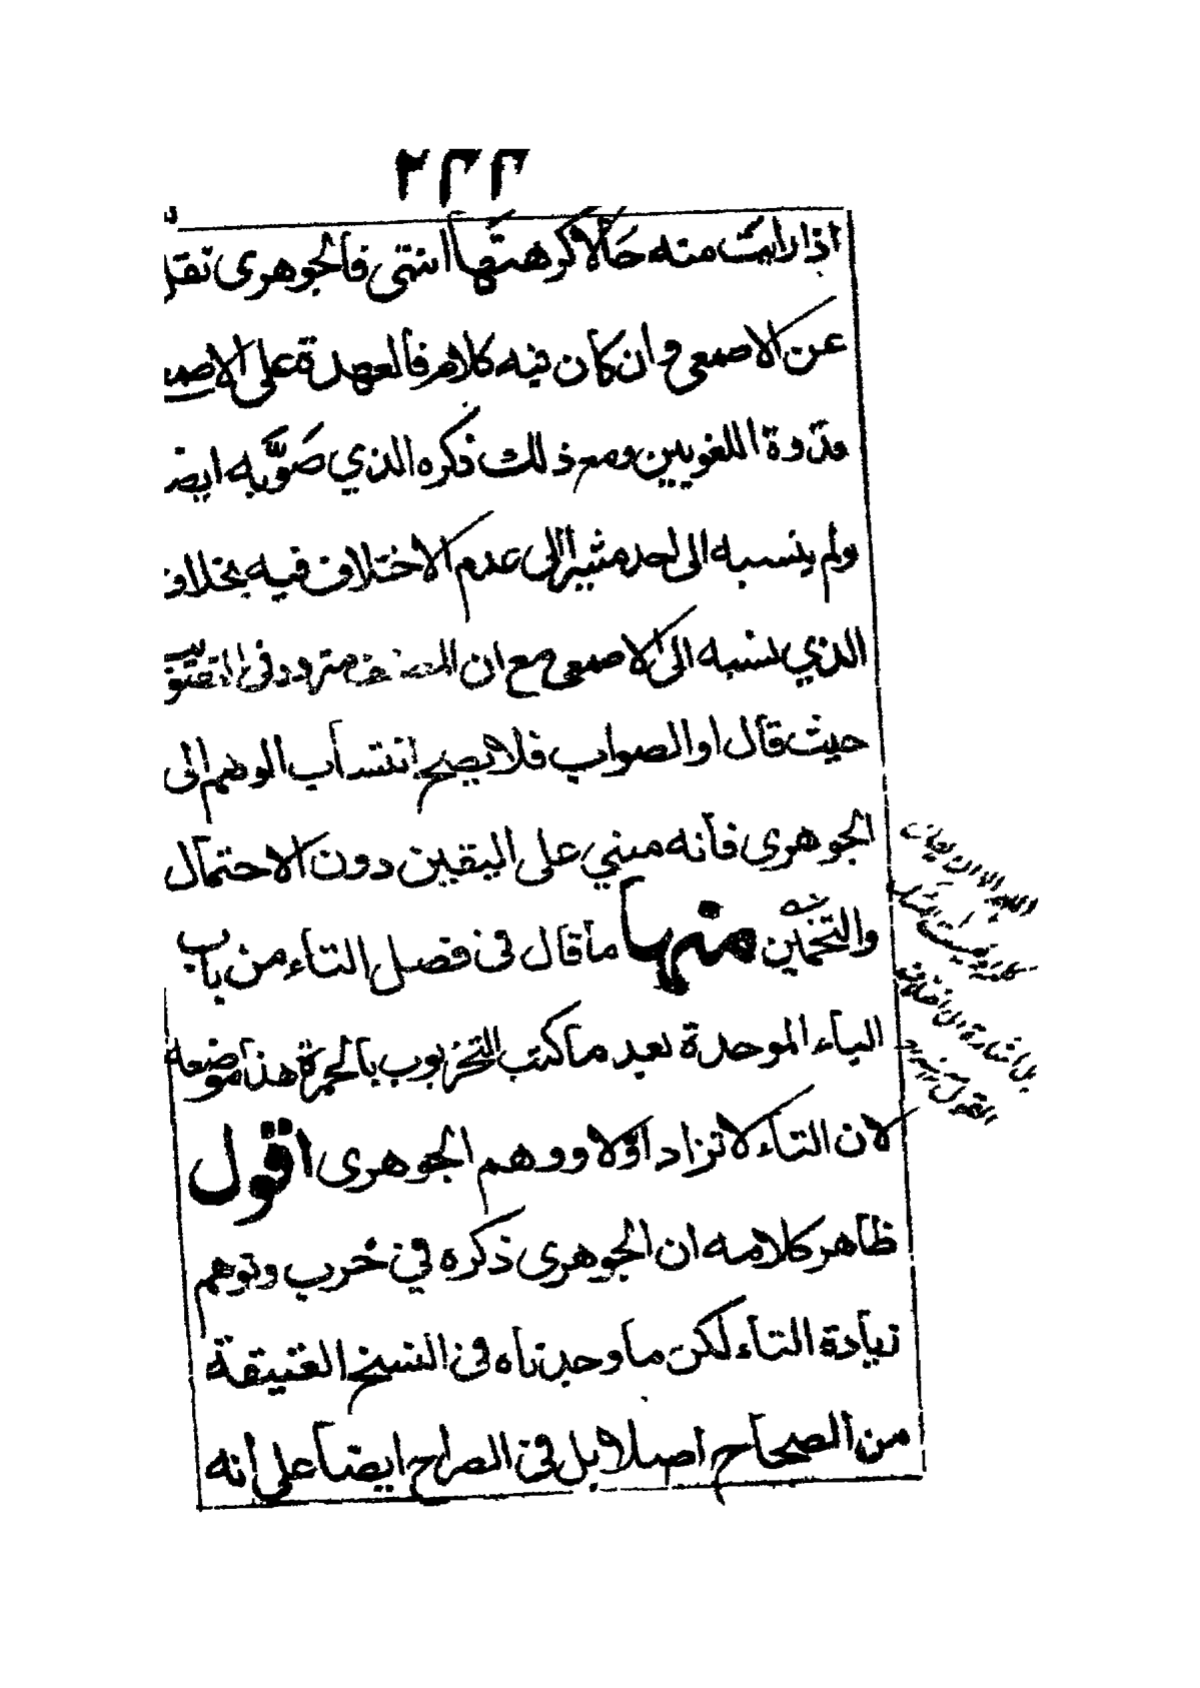 ٢٣٣
اذا رايت منه حَالًا كرهتَها انتهى فالجوهرى نقل
عن الاصمعى وان كان فيه كلام فالعهدة على الاصمع
قدوة اللغويين ومع ذلك ذكره الذي صَوَّبه ايض
ولم ينسبه الى احد مشيرا الى عدم الاختلاف فيه بخلاف
الذي نسبه الى الاصمعى مع ان المصنف متردد فى
حيث قال او الصواب فلا يصح انتساب الوهم الى
الجوهرى فانه مبني على اليقين دون الاحتمال
والتخمين منها ما قال فى فصل التاء من باب
الباء الموحدة بعد ما كتب التخربوب بالحمرة هذا موضعه
لان التاء لا تزاد اوّلا ووهم الجوهرى اقول
ظاهر كلامه ان الجوهرى ذكره في خرب وتوهم
زيادة التاء لكن ما وجدناه فى النسخ العتيقة
من الصحاح اصلا بل فى الصراح ايضا على انه
اللهم الا ان يقال
بل اشارة الى اختلاف
القول